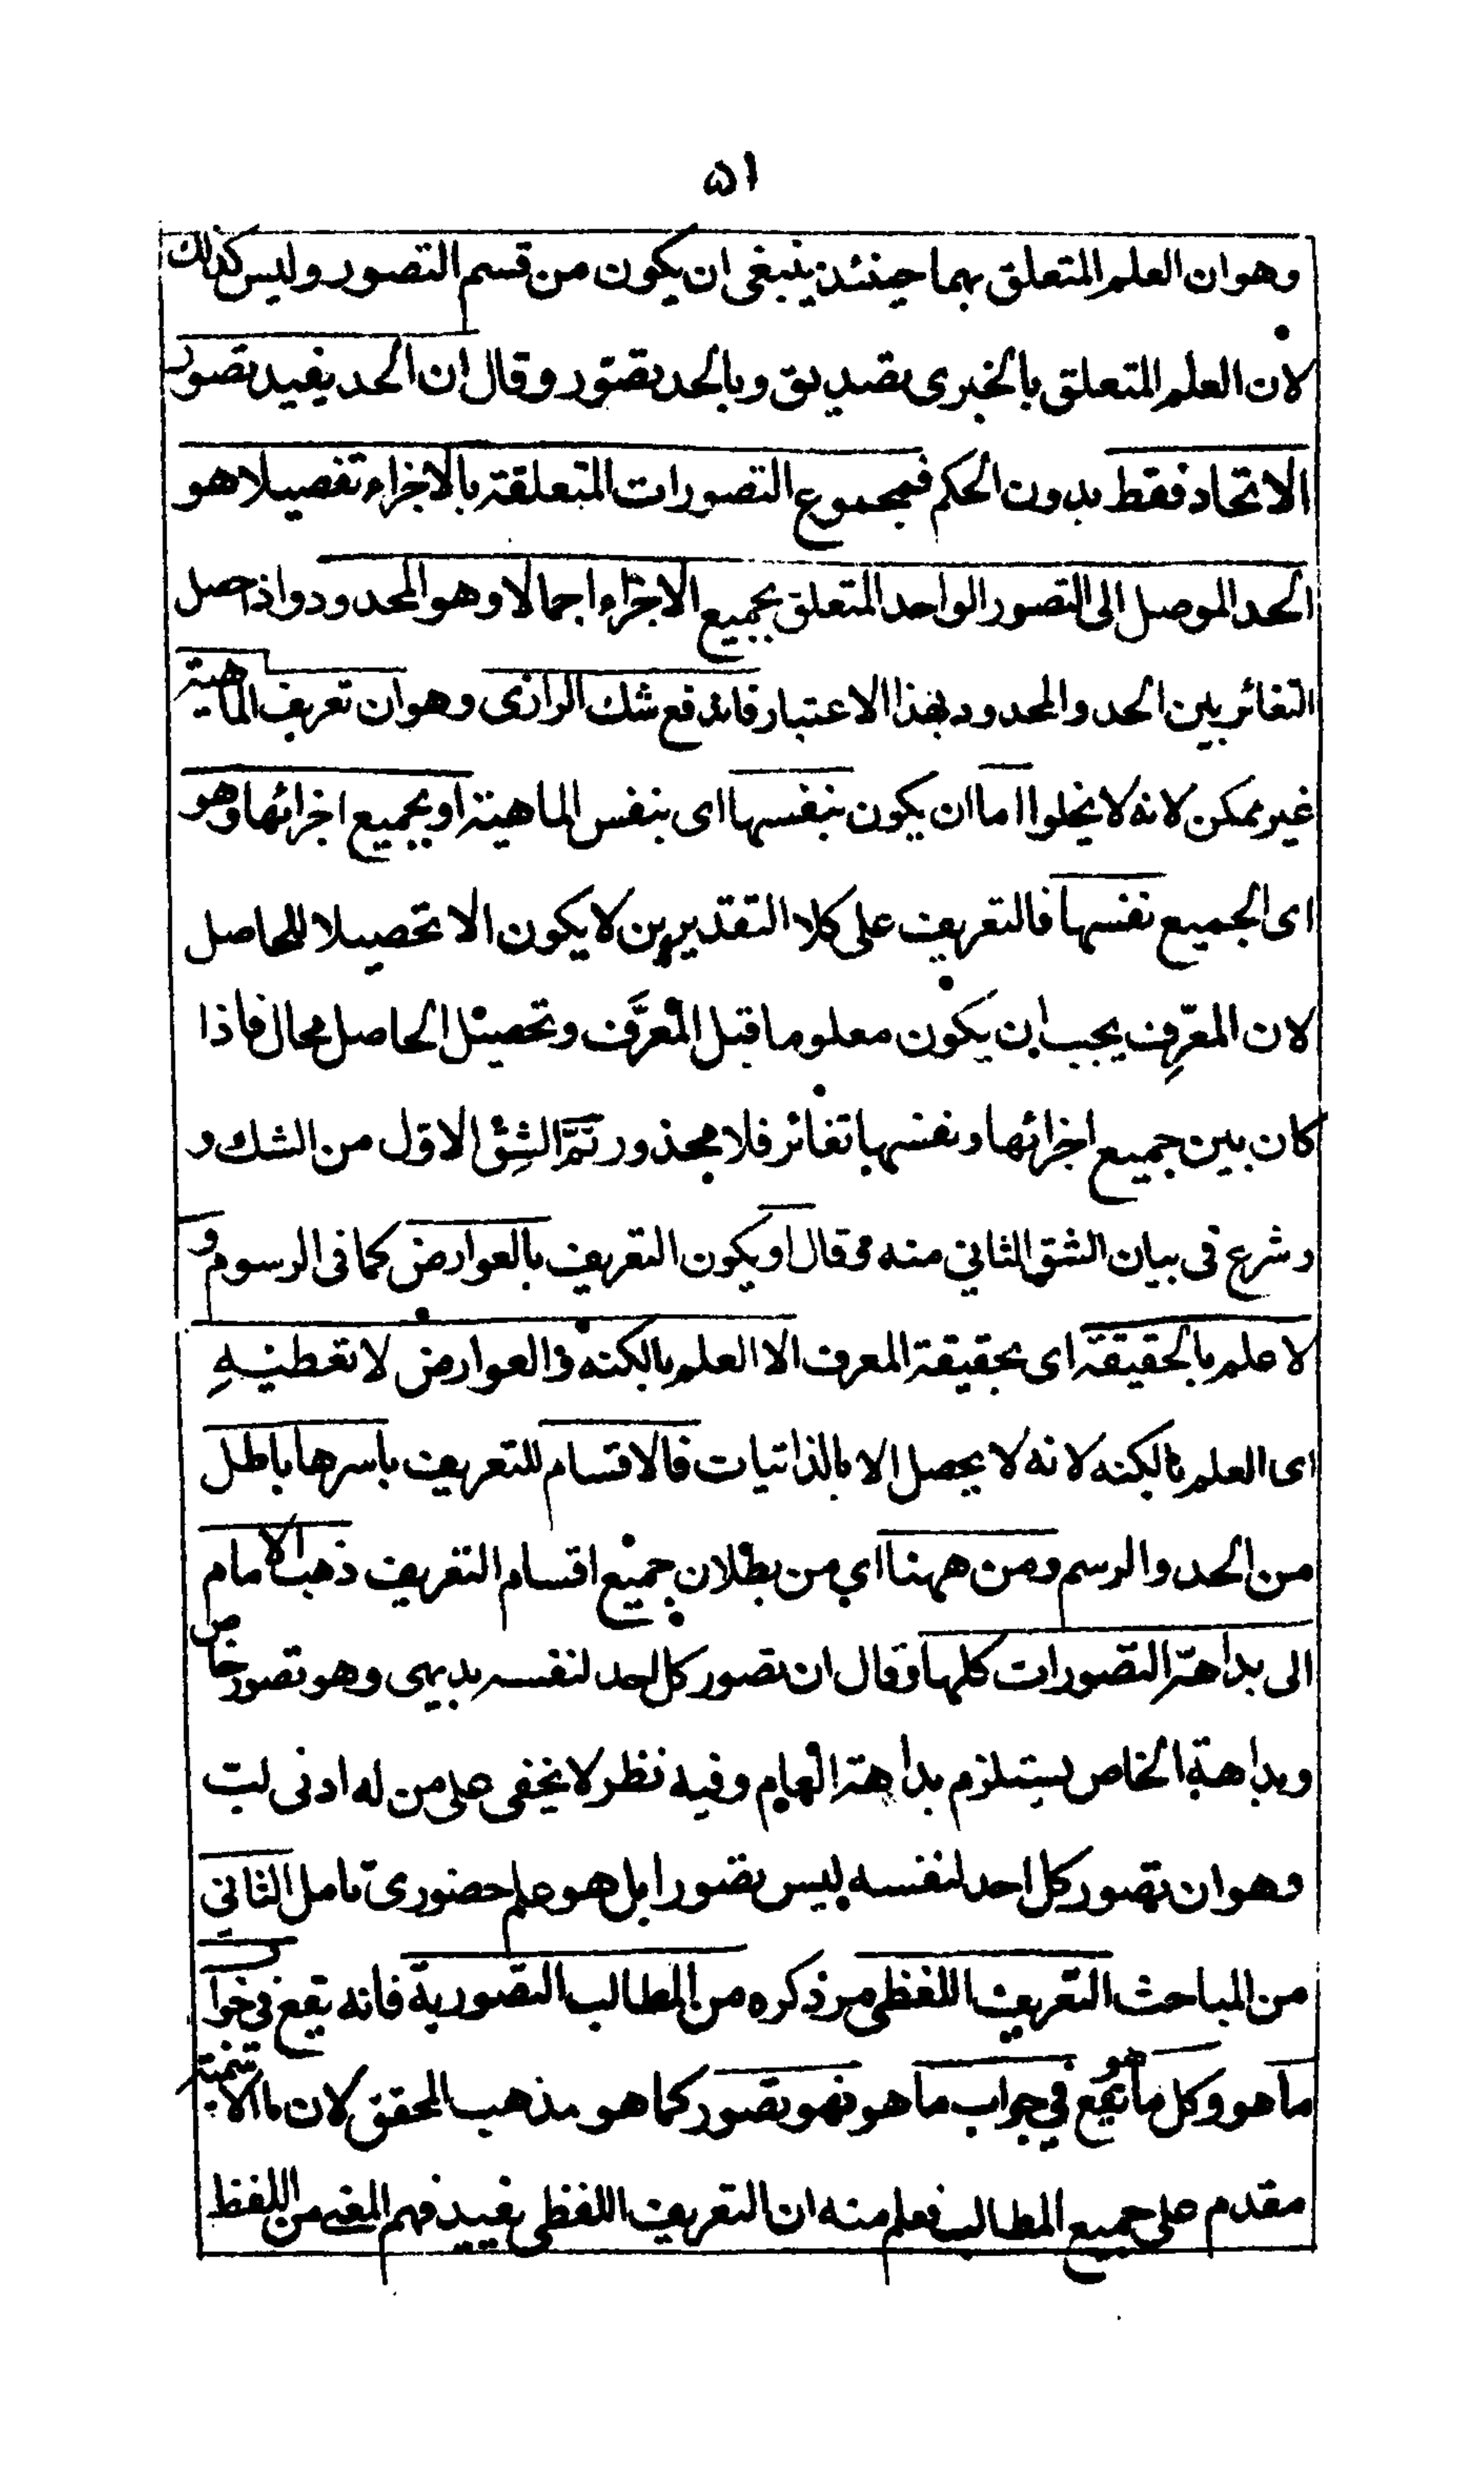 ۵۱
وهوان العلم المتعلق بهما حينئذ ينبغى ان يكون من قسم التصور وليس كذلك
لان العلم المتعلق بالخبرى تصديق وبالحد تصور وقال ان الحد يفيد تصور
الاتحاد فقط بدون الحكم فمجموع التصورات المتعلقة بالاجزاء تفصيلا هو
الحد الموصل الى التصور الواحد المتعلق بجميع الاجزاء اجمالا وهو المحدود واذا حصل
التغائر بين الحد والمحدود بهذا الاعتبار فاندفع شك الرازى وهو ان تعريف الماهية
غير ممكن لانه لا يخلوا اما ان يكون بنفسها اى بنفس الماهية او بجميع اجزائها وهو
اى الجميع نفسها فالتعريف على كلا التقديرين لا يكون الا تحصيلا للحاصل
لان المعرِّف يجب ان يكون معلوما قبل المعرَّف وتحصيل الحاصل محال فاذا
كان بين جميع اجزائها ونفسها تغائر فلا محذور تمَّ الشِق الاول من الشك و
شرع فى بيان الشق الثانى منه وقال او يكون التعريف بالعوارض كما فى الرسوم و
لا علم بالحقيقة اى بحقيقة المعرف الا العلم بالكنه والعوارض لا تعطيهِ
اى العلم بالكنه لانه لا يحصل الا بالذاتيات فالاقسام للتعريف باسرها باطل
من الحد والرسم ومن ههنا اي من بطلان جميع اقسام التعريف ذهب الامام
الى بداهة التصورات كلها وقال ان تصور كل احد لنفسه بديهى وهو تصور خاص
وبداهة الخاص يستلزم بداهة العام وفيه نظر لا يخفى على من له ادنى لب
وهو ان تصور كل احد لنفسه ليس تصورا بل هو علم حضورى تامل الثاني
من المباحث التعريف اللفظى مر ذكره من المطالب التصورية فانه يقع فى جواب
ما هو وكل ما هو يقع في جواب ما هو فهو تصور كما هو مذهب المحقق لان ما الاسمية
مقدم على جميع المطالب فعلم منه ان التعريف اللفظى يفيد فهم المعنى من اللفظ